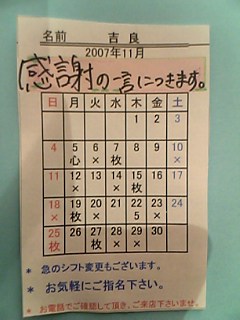 名前 吉良
2007年11月
感謝の一言につきます。
日 月 火 水 木 金 土
1 2 3
4 5 6 7 8 9 10
心 × 枚 ×
11 12 13 14 15 16 17
× × 枚
18 19 20 21 22 23 24
× 枚 × × 5 ×
25 26 27 28 29 30
枚 × × ×
* 急のシフト変更もございます。
* お気軽にご指名下さい。
* お電話でご確認して頂き、ご来店下さいませ。